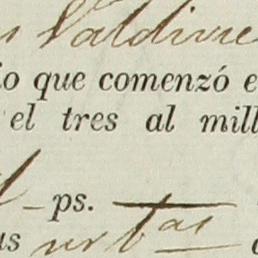 Valdivie
io que comenzó e
el tres al mill
ps.
as urbas